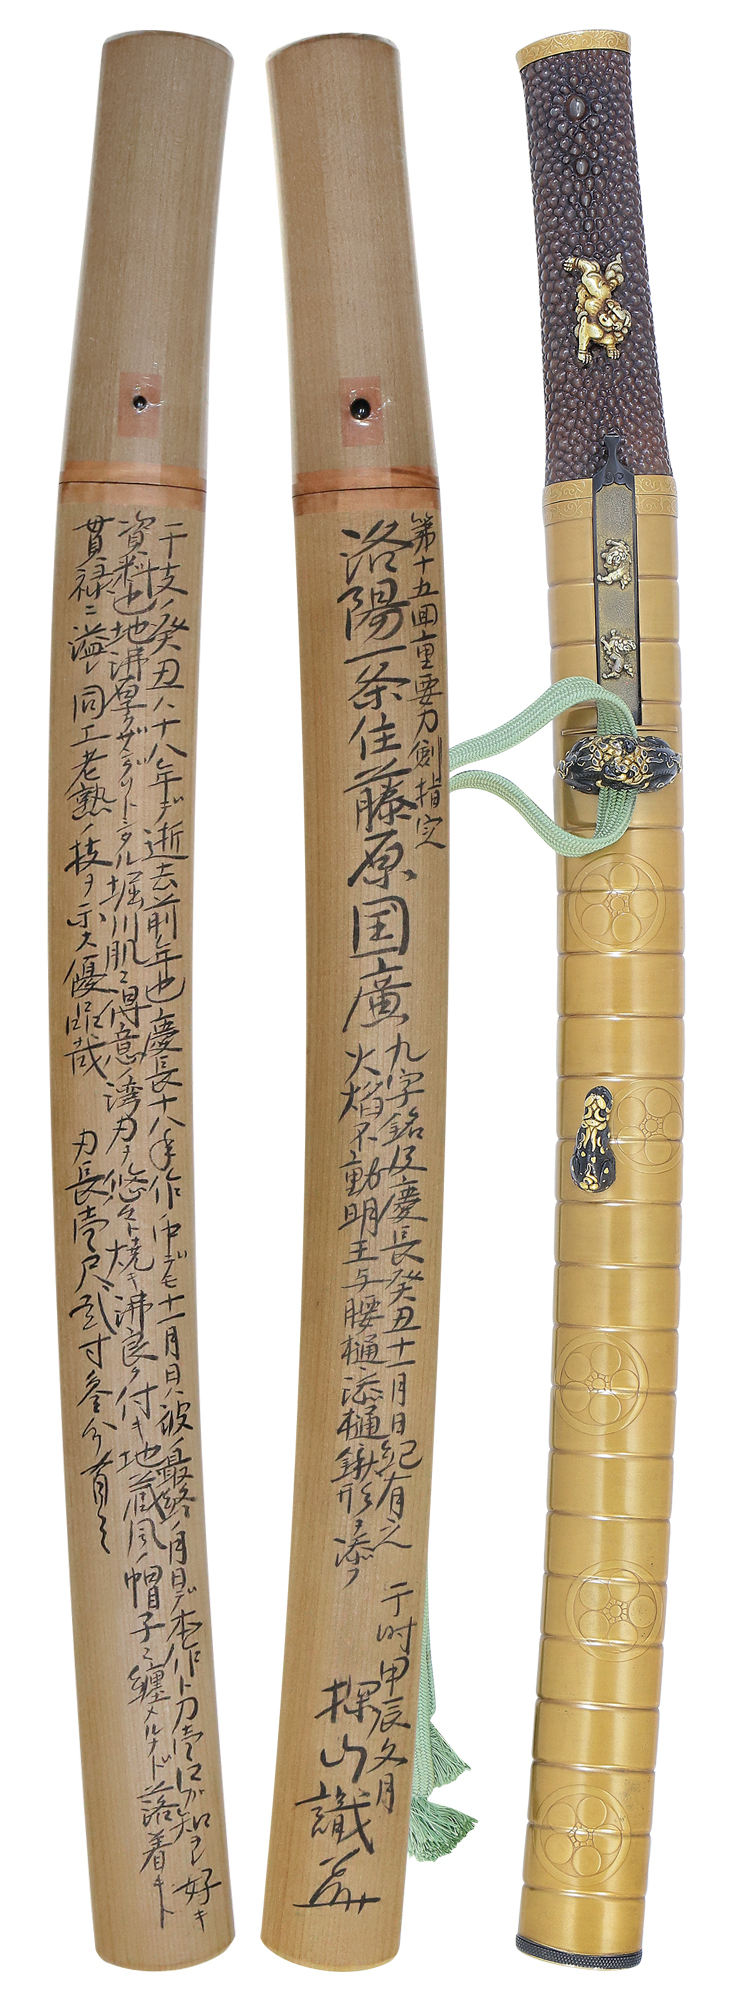 第十五回重要刀剣指定
洛陽一条住藤原国廣
九字銘及慶長癸丑十一月日紀有之
火焔不動明王与腰樋ニ添樋鉾形ヲ添フ
于時甲辰文月
探山識
干支ノ癸丑ハ十八年デ逝去前年也慶長十八年作中デモ十一月日ハ彼ノ最終ノ月日デ本作ト刀壱口ガ知ラル好キ
資料也地沸厚クザングリトシタル堀川肌ニ得意ノ湾刃ヲ悠々ト焼キ沸良ク付キ地蔵風ノ帽子ニ纏メルナド落着キト
貫禄ニ溢レ同工老熟ノ技ヲ示ス優品哉
刃長壱尺弐寸参分有之